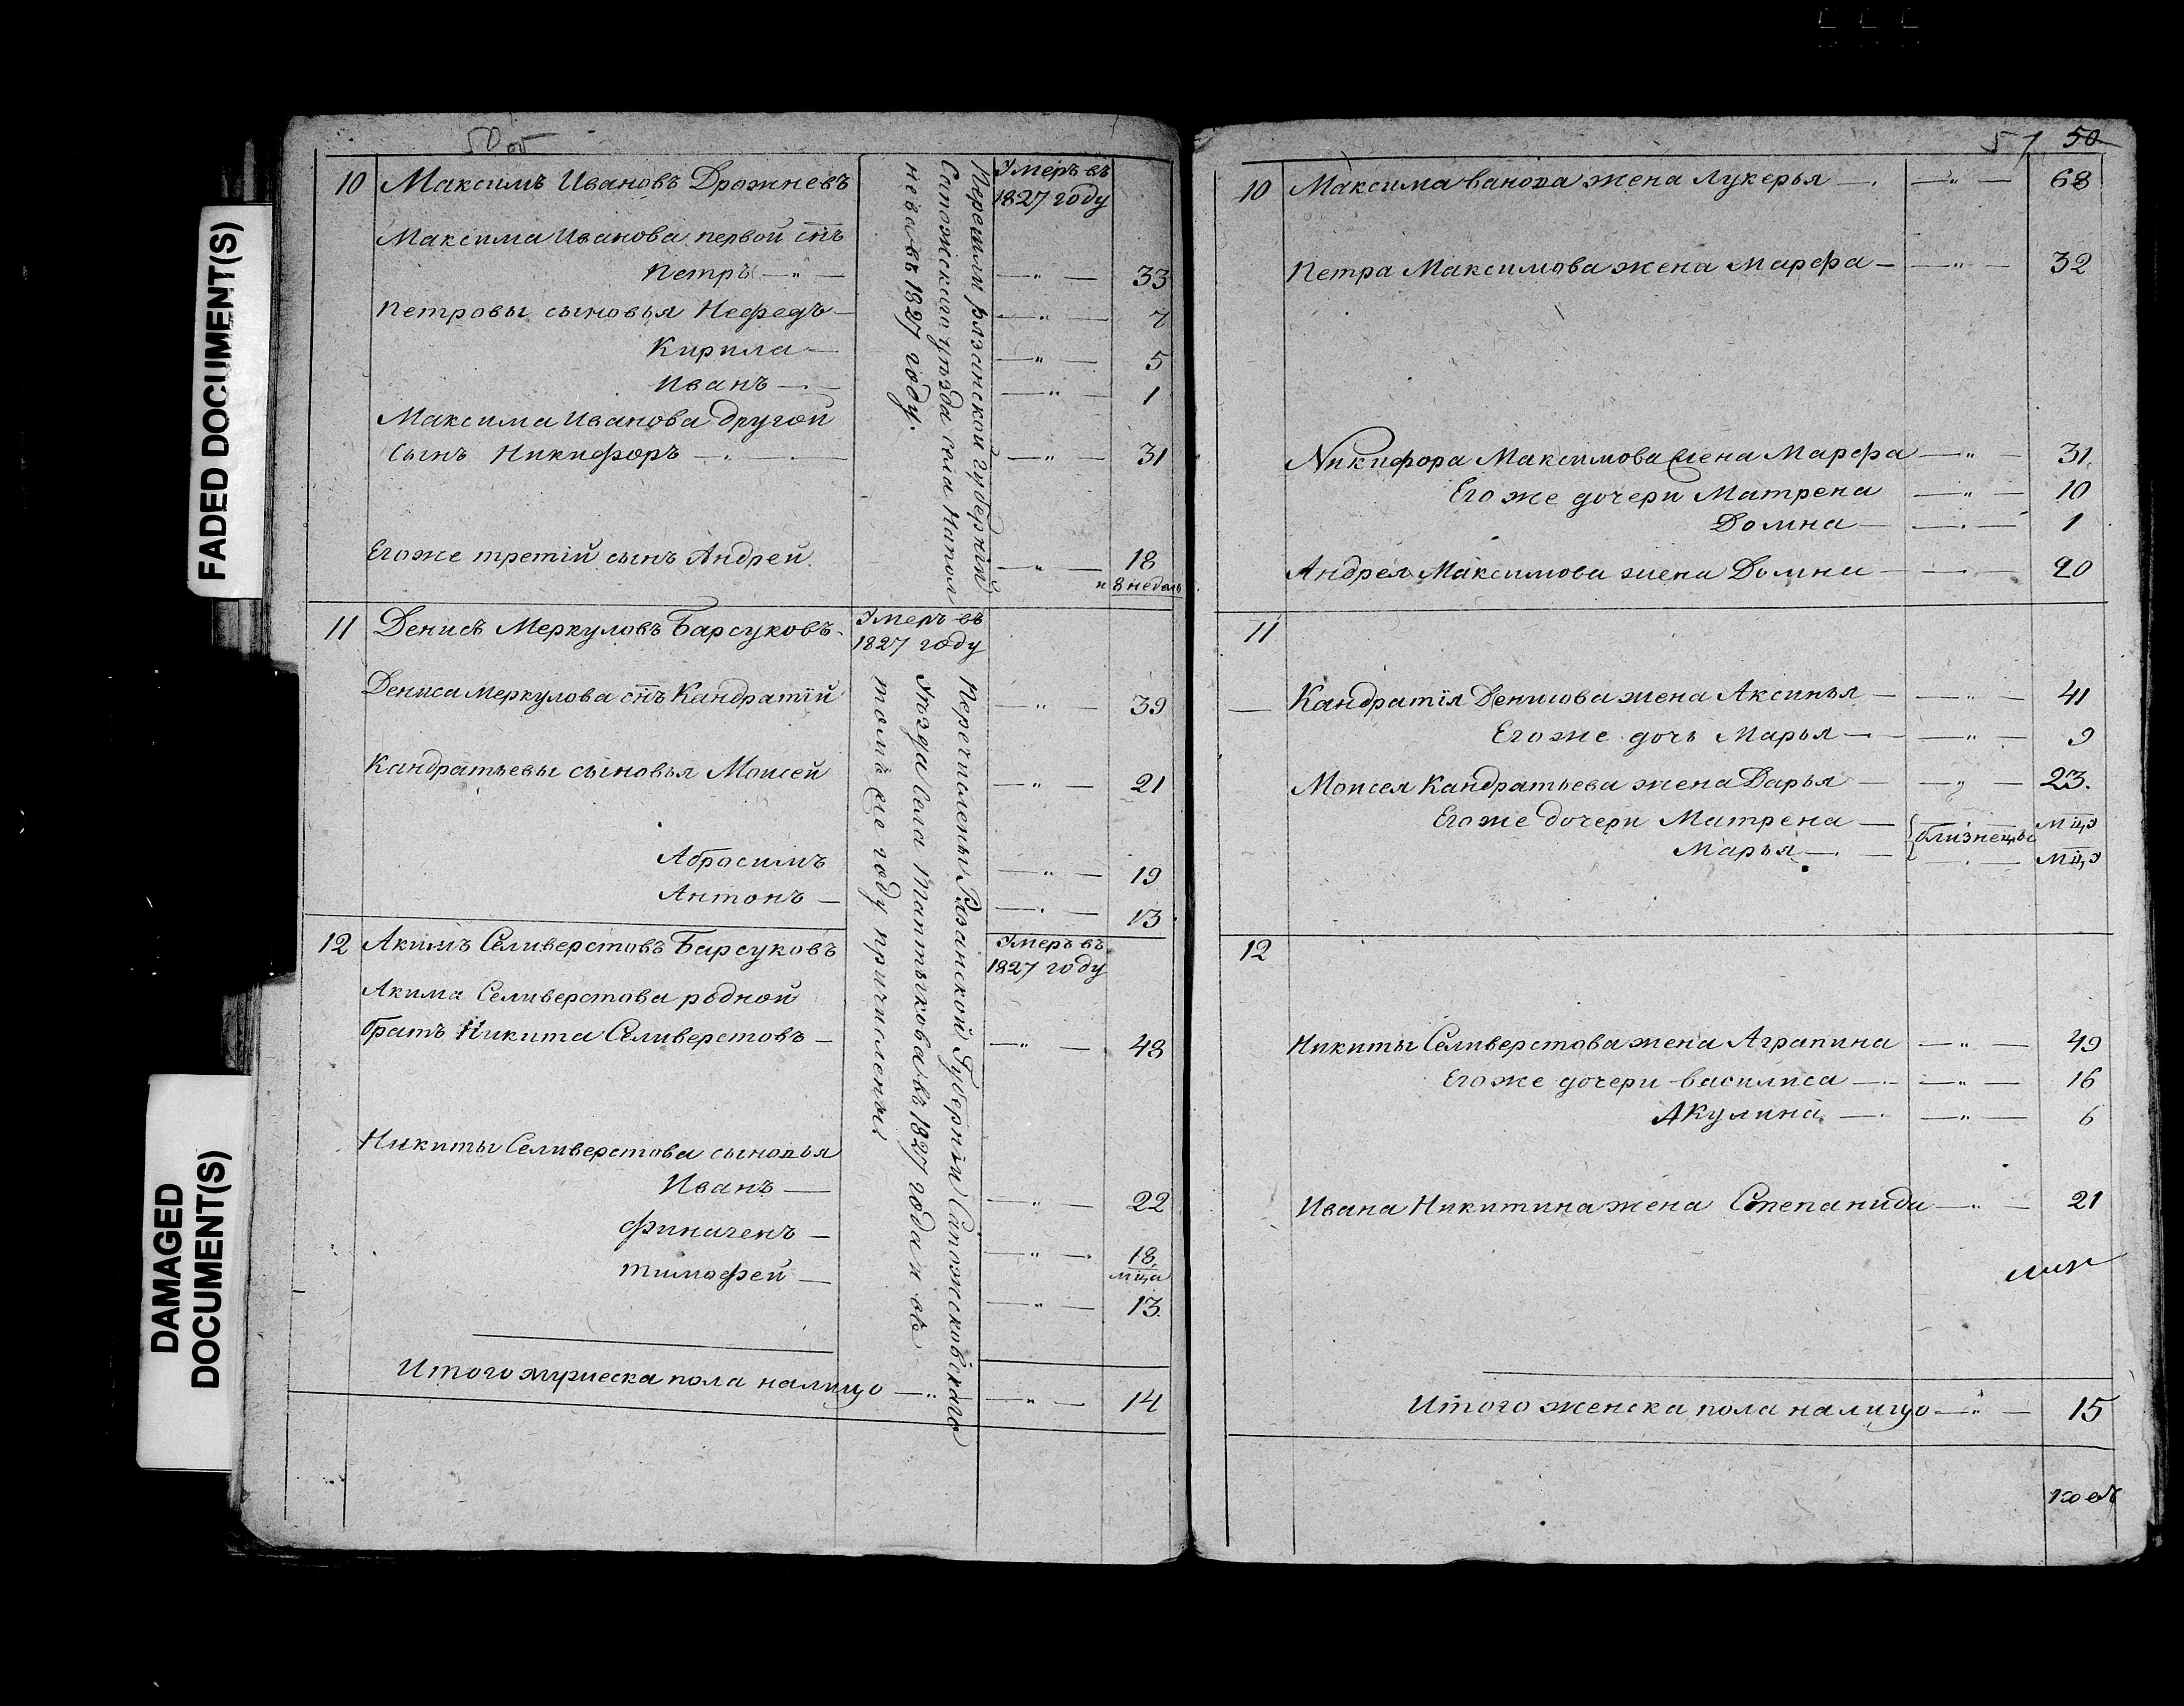 FADED DOCUMENT(S)
DAMAGED
DOCUMENT(S)
50 об
10 Максимъ Ивановъ Дрожневъ
Умеръ въ
1827 году
Максима Иванова первой снъ
Петръ — " — — " — 33
Петровы сыновья Нефедъ — — " — 7
Кирила — — " — 5
Иванъ — — " — 1
Максима Иванова другой
сынъ Никифоръ — — " — 31
Егоже третій сынъ Андрей — " — 18
и 8 недель
Перешли рязанской губерніи
Сапожскаго уѣзда села Напол
нева въ 1827 году.
11 Денисъ Меркуловъ Барсуковъ
Умеръ въ
1827 году
Дениса Меркулова снъ Кандратій — " — 39
Кандратьевы сыновья Моисей — " — 21
Абросимъ — " — 19
Антонъ — — " — 13
Перечислены Рязанской Губерніи
Уѣзда Села въ 1827 года и въ
томъ же году причислены
12 Акимъ Селиверстовъ Барсуковъ
Умеръ въ
1827 году
Акима Селиверстова родной
братъ Никита Селиверстовъ — — " — 48
Никиты Селиверстова сыновья
Иванъ — — " — 22
— " — 18
мца
Тимофей — — " — 13
Итого мужеска пола налицо — " — — " — 14
51 50
10 Максима ванова жена Лукерья — — " — 68
Петра Максимова жена Марфа — — " — 32
Никифора Максимова жена Марфа — " — 31
Егоже дочери Матрена — " — 10
Домна — — " — 1
Андрея Максимова жена Домна — — " — 20
11
Кандратія Денисова жена Аксинья — — " — 41
Егоже дочь Марья — — " — 9
Моисея Кандратьева жена Дарья — — " — 23.
Егоже дочери Матрена — близнецы мца
Марья — мца
12
Никиты Селиверстова жена Аграпина — " — 49
Егоже дочери василиса — — " — 16
Акулина — — " — 6
Ивана Никитина жена Степанида — " — 21
Итого женска пола налицо — " — 15